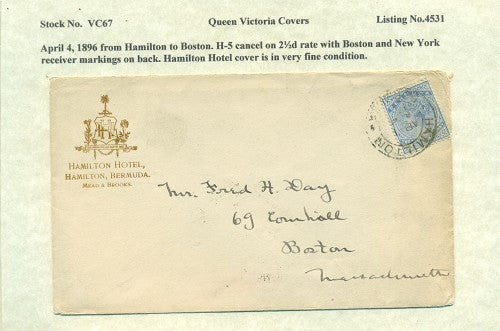 Stock No. VC67 Queen Victoria Covers Listing No.4531
April 4, 1896 from Hamilton to Boston. H-5 cancel on 2½d rate with Boston and New York
receiver markings on back. Hamilton Hotel cover is in very fine condition.
HAMILTON HOTEL,
HAMILTON, BERMUDA.
MEAD & BROOKS.
HAMILTON
Mr. Fred H. Day
69 Cornhill
Boston
Massachusetts